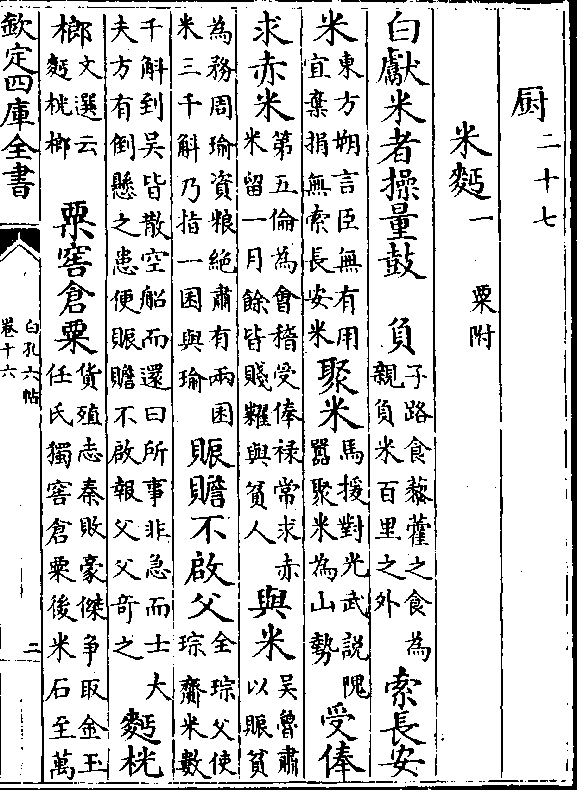 厨二十七
米麫一 粟附
白獻米者操量鼓 負 子路食藜藿之食為親負米百里之外 索長安
米 東方朔言臣無有用宜棄捐無索長安米 聚米 馬援對光武説隗囂聚米為山勢 受俸
求赤米 第五倫為會稽受俸禄常求赤米留一月餘皆賤糶與貧人 與米 吳魯肅以賑貧
為務周瑜資粮絶肅有兩囷米三千斛乃指一囷與瑜 賑贍不啟父 全琮父使琮齎米數
千斛到吳皆散空船而還曰所事非急而士大夫方有倒懸之患便賑贍不啟報父父竒之 麫桄
榔 文選云麫桄榔 粟窖倉粟 貨殖志秦敗豪傑争取金玉任氏獨窖倉粟後米石至萬
欽定四庫全書
白孔六帖
卷十六
二